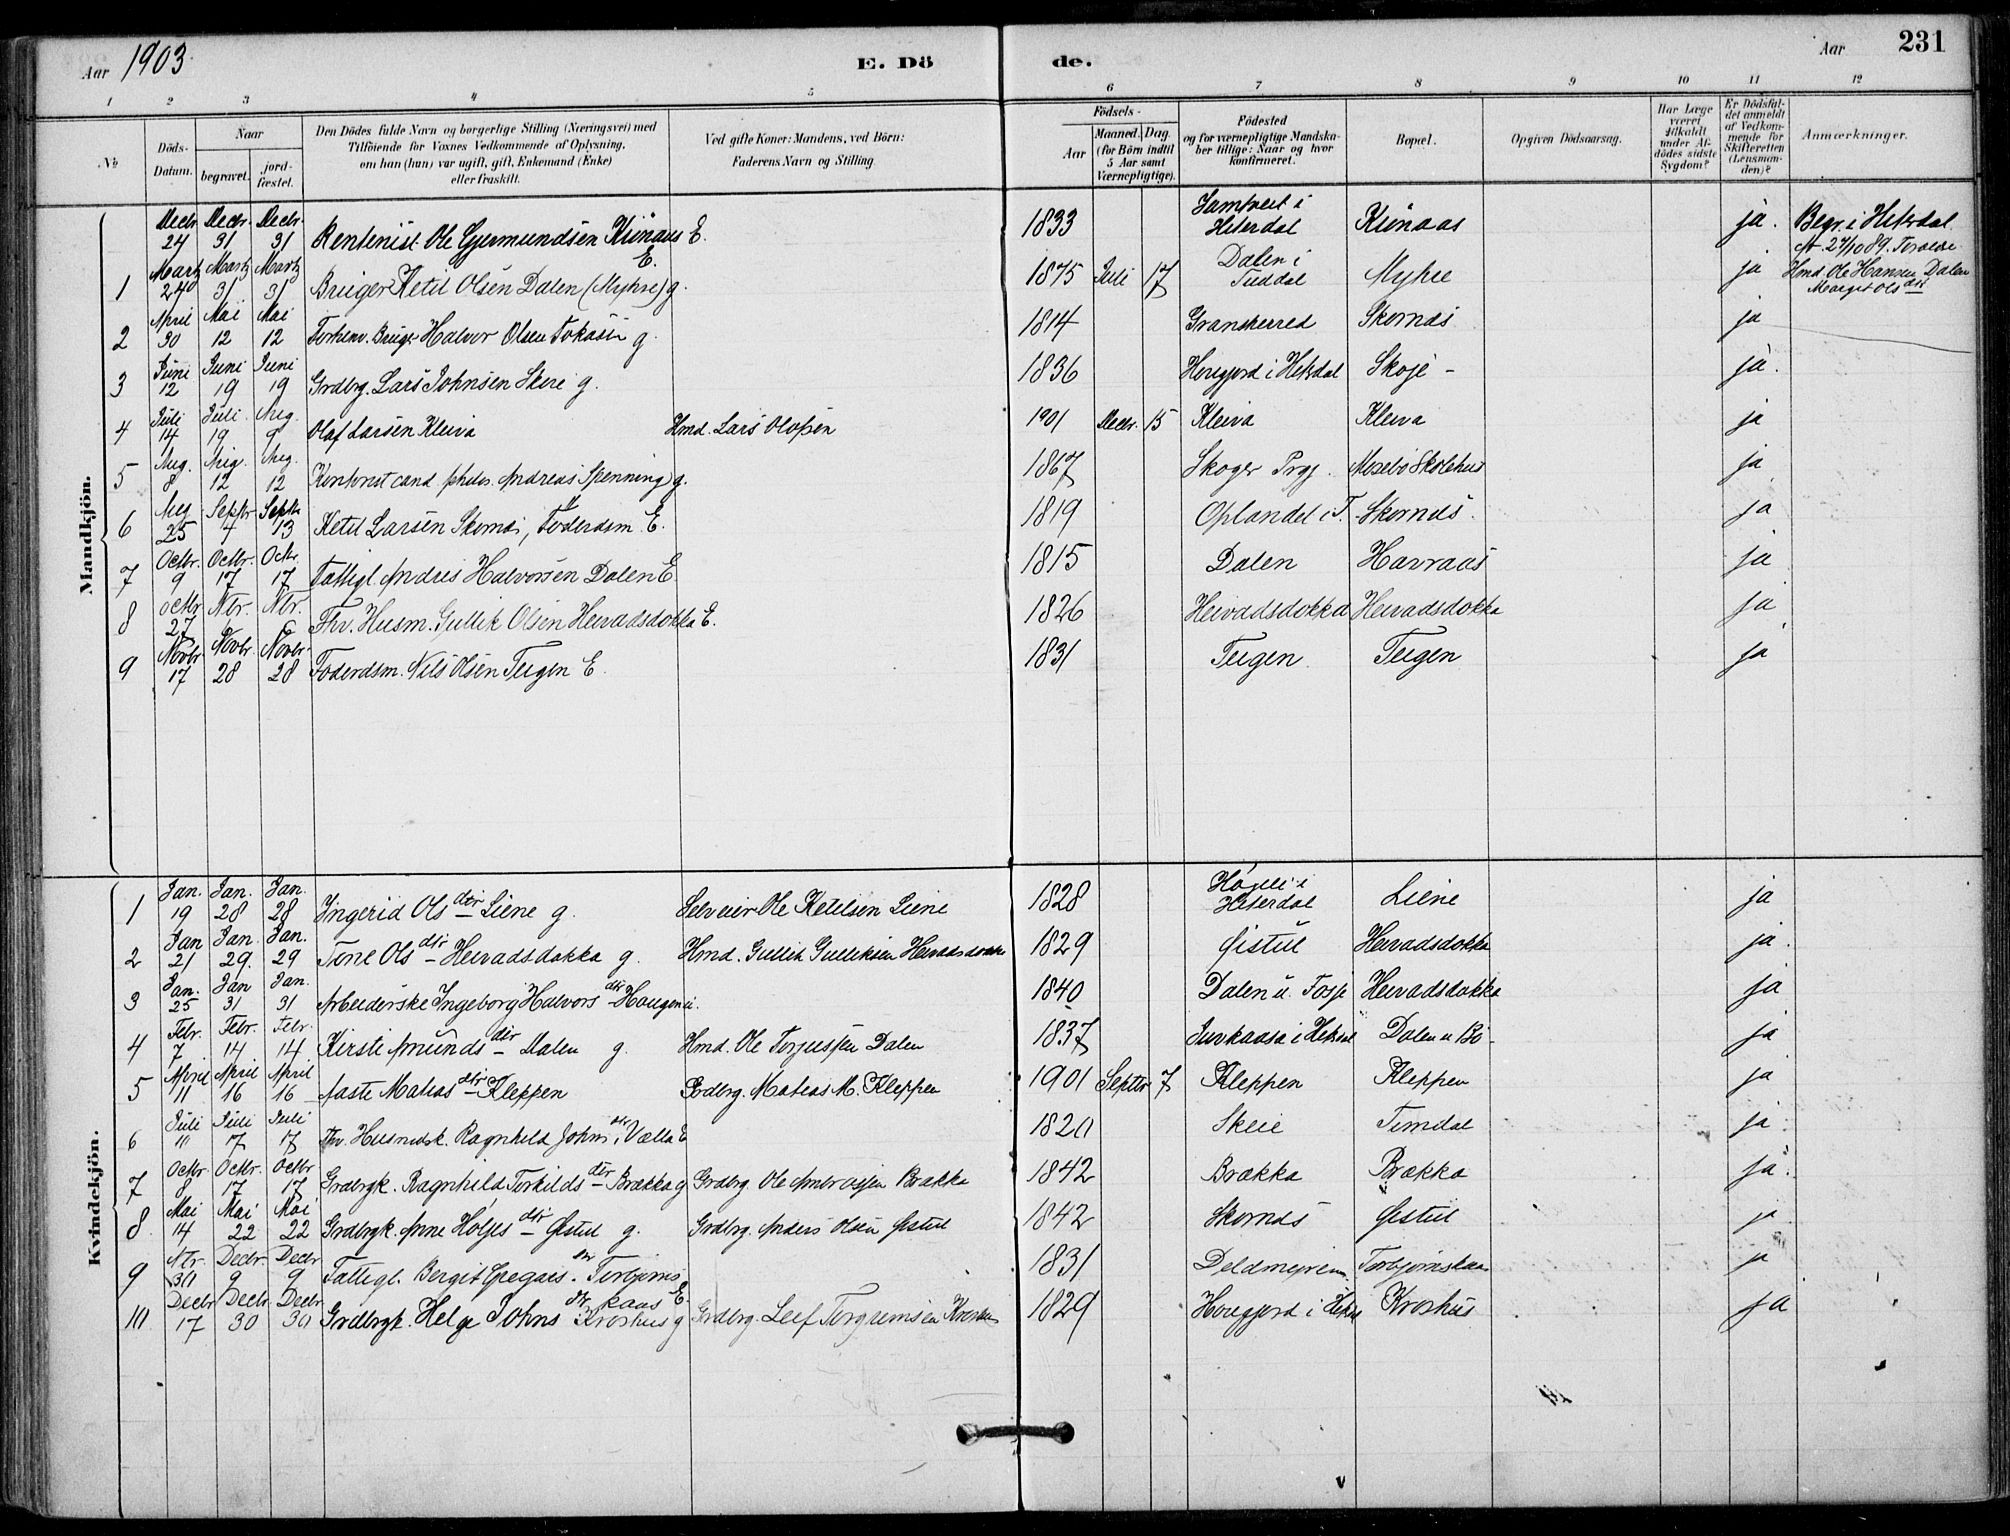 Aar 1903. E. Dö de. Aar 231
1 2 3 4 5 6 7 8 9 10 11 12
No Döds-Datum. Naar begravet. jord-fæstet. Den Dödes fulde Navn og borgerlige Stilling (Næringsvei) med Tilföiende for Voxnes Vedkommende af Oplysning, om han (hun) var ugift, gift, Enkemand (Enke) eller fraskilt. Ved gifte Koner: Mandens, ved Börn: Faderens Navn og Stilling. Födsels- Aar Maaned. Dag. (for Börn indtil 5 Aar samt Værnepligtige). Födested og for værnepligtige Mandskaber tillige: Naar og hvor konfirmeret. Bopæl. Opgiven Dödsaarsag. Har Læge været tilkaldt under Afdödes sidste Sygdom? Er Dödsfaldet anmeldt af Vedkommende for Skifteretten (Lensmanden)? Anmærkninger.
Mandkjön.
Decbr. 24 Decbr. 31 Decbr. 31 Rentenist Ole Gjermundsen E. 1833 Hiterdal ja. Begr. i Hitrdal
1 Martz 24 Martz 31 Martz 31 Bruger Ketil Olsen Dalen (Myhre) g. 1875 Juli 17 Dalen i Tuddal Myhre ja Hmd. Ole Hansen Dalen
2 April 30 Mai 12 Mai 12 Forhenv. Bruger Halvor Olsen g. 1814 Gransherred Skornds ja
3 Juni 12 Juni 19 Juni 19 Grdbrg. Lars Johnsen Skeie g. 1836 i Hitrdal Skoje ja.
4 Juli 14 Juli 19 Aug. 9 Olaf Larsen Kleiva Hmd. Lars Olofsen 1901 Decbr. 15 Kleiva Kleiva ja
5 Aug. 8 Aug. 12 Aug. 12 cand. philos. Andreas Spenning g. 1867 Skoger Prgj. Mosebö Skolehus ja
6 Aug 25 Septr 4 Septr. 13 Ketil Larsen Foderdsm. E. 1819 Oplandet i T. Skornds. ja
7 Octbr. 9 Octbr. 17 Octbr. 17 Fattigl. Andres Halvorsen Dalen E. 1815 Dalen Havraas ja
8 Octbr 27 Nbr. 6 Nbr. 6 Fhv. Husm. Gullik Olsen Heivadsdokka E. 1826 Heivadsdokka Heivadsdokka ja
9 Novbr. 17 Novbr. 28 Novbr. 28 Foderdsm. Nils Olsen Teigen E. 1831 Teigen Teigen ja
Kvindekjön.
1 Jan. 19 Jan. 28 Jan. 28 Ingerid Olsdtr Liene g. Selveier Ole Ketilsen Liene 1828 Hiterdal Liene ja
2 Jan 21 Jan. 29. Jan. 29 Tone Olsdtr Heivadsdokka g. Hmd. Gullik Gulliksen Heivadsdokka 1829 Øistul Heivadsdokka ja.
3 Jan. 25 Jan 31 Jan. 31 Arbeiderske Ingeborg Halvorsdtr Haugen u. 1840 Dalen Heivadsdokka ja
4 Febr. 7 Febr. 14 Febr. 14 Kirsti Amundsdtr Dalen g. Hmd. Ole Torjussen Dalen 1837 i Hitrdal Dalen ja
5 April 11 April 16 April 16 Aaste Matiasdtr Kleppen Grdbrg. Matias M. Kleppen 1901 Septbr 7 Kleppen Kleppen ja
6 Juli 11 Juli 17 Juli 17 Fhv. Ragnhild Johnsdtr E 1820 Skeie ja.
7 Octbr 8 Octbr. 17 Octbr 17 Grdbrgk. Ragnhild Torkildsdtr Brækka g Grdbrg. Ole Ambrossen Brækka 1842 Brækka Brækka ja.
8 Mai 14 Mai 22 Mai 22 Grdbrgk. Anne Holjesdtr Øistul g. Grdbrg. Anders Olsen Øistul 1842 Skornds Øistul ja
9 Nbr. 30 Decbr. 9 Decbr 9 Fattigl. Bergit Gregarsdtr Torbjørnskaas E. 1831 Torbjørnskaas ja
10 Decbr 17 Decbr. 30 Decbr 30 Grdbrgk. Helge Johnsdtr Kroshus g Grdbrg. Leif Torgrimsen Kroshus 1829 Kroshus ja